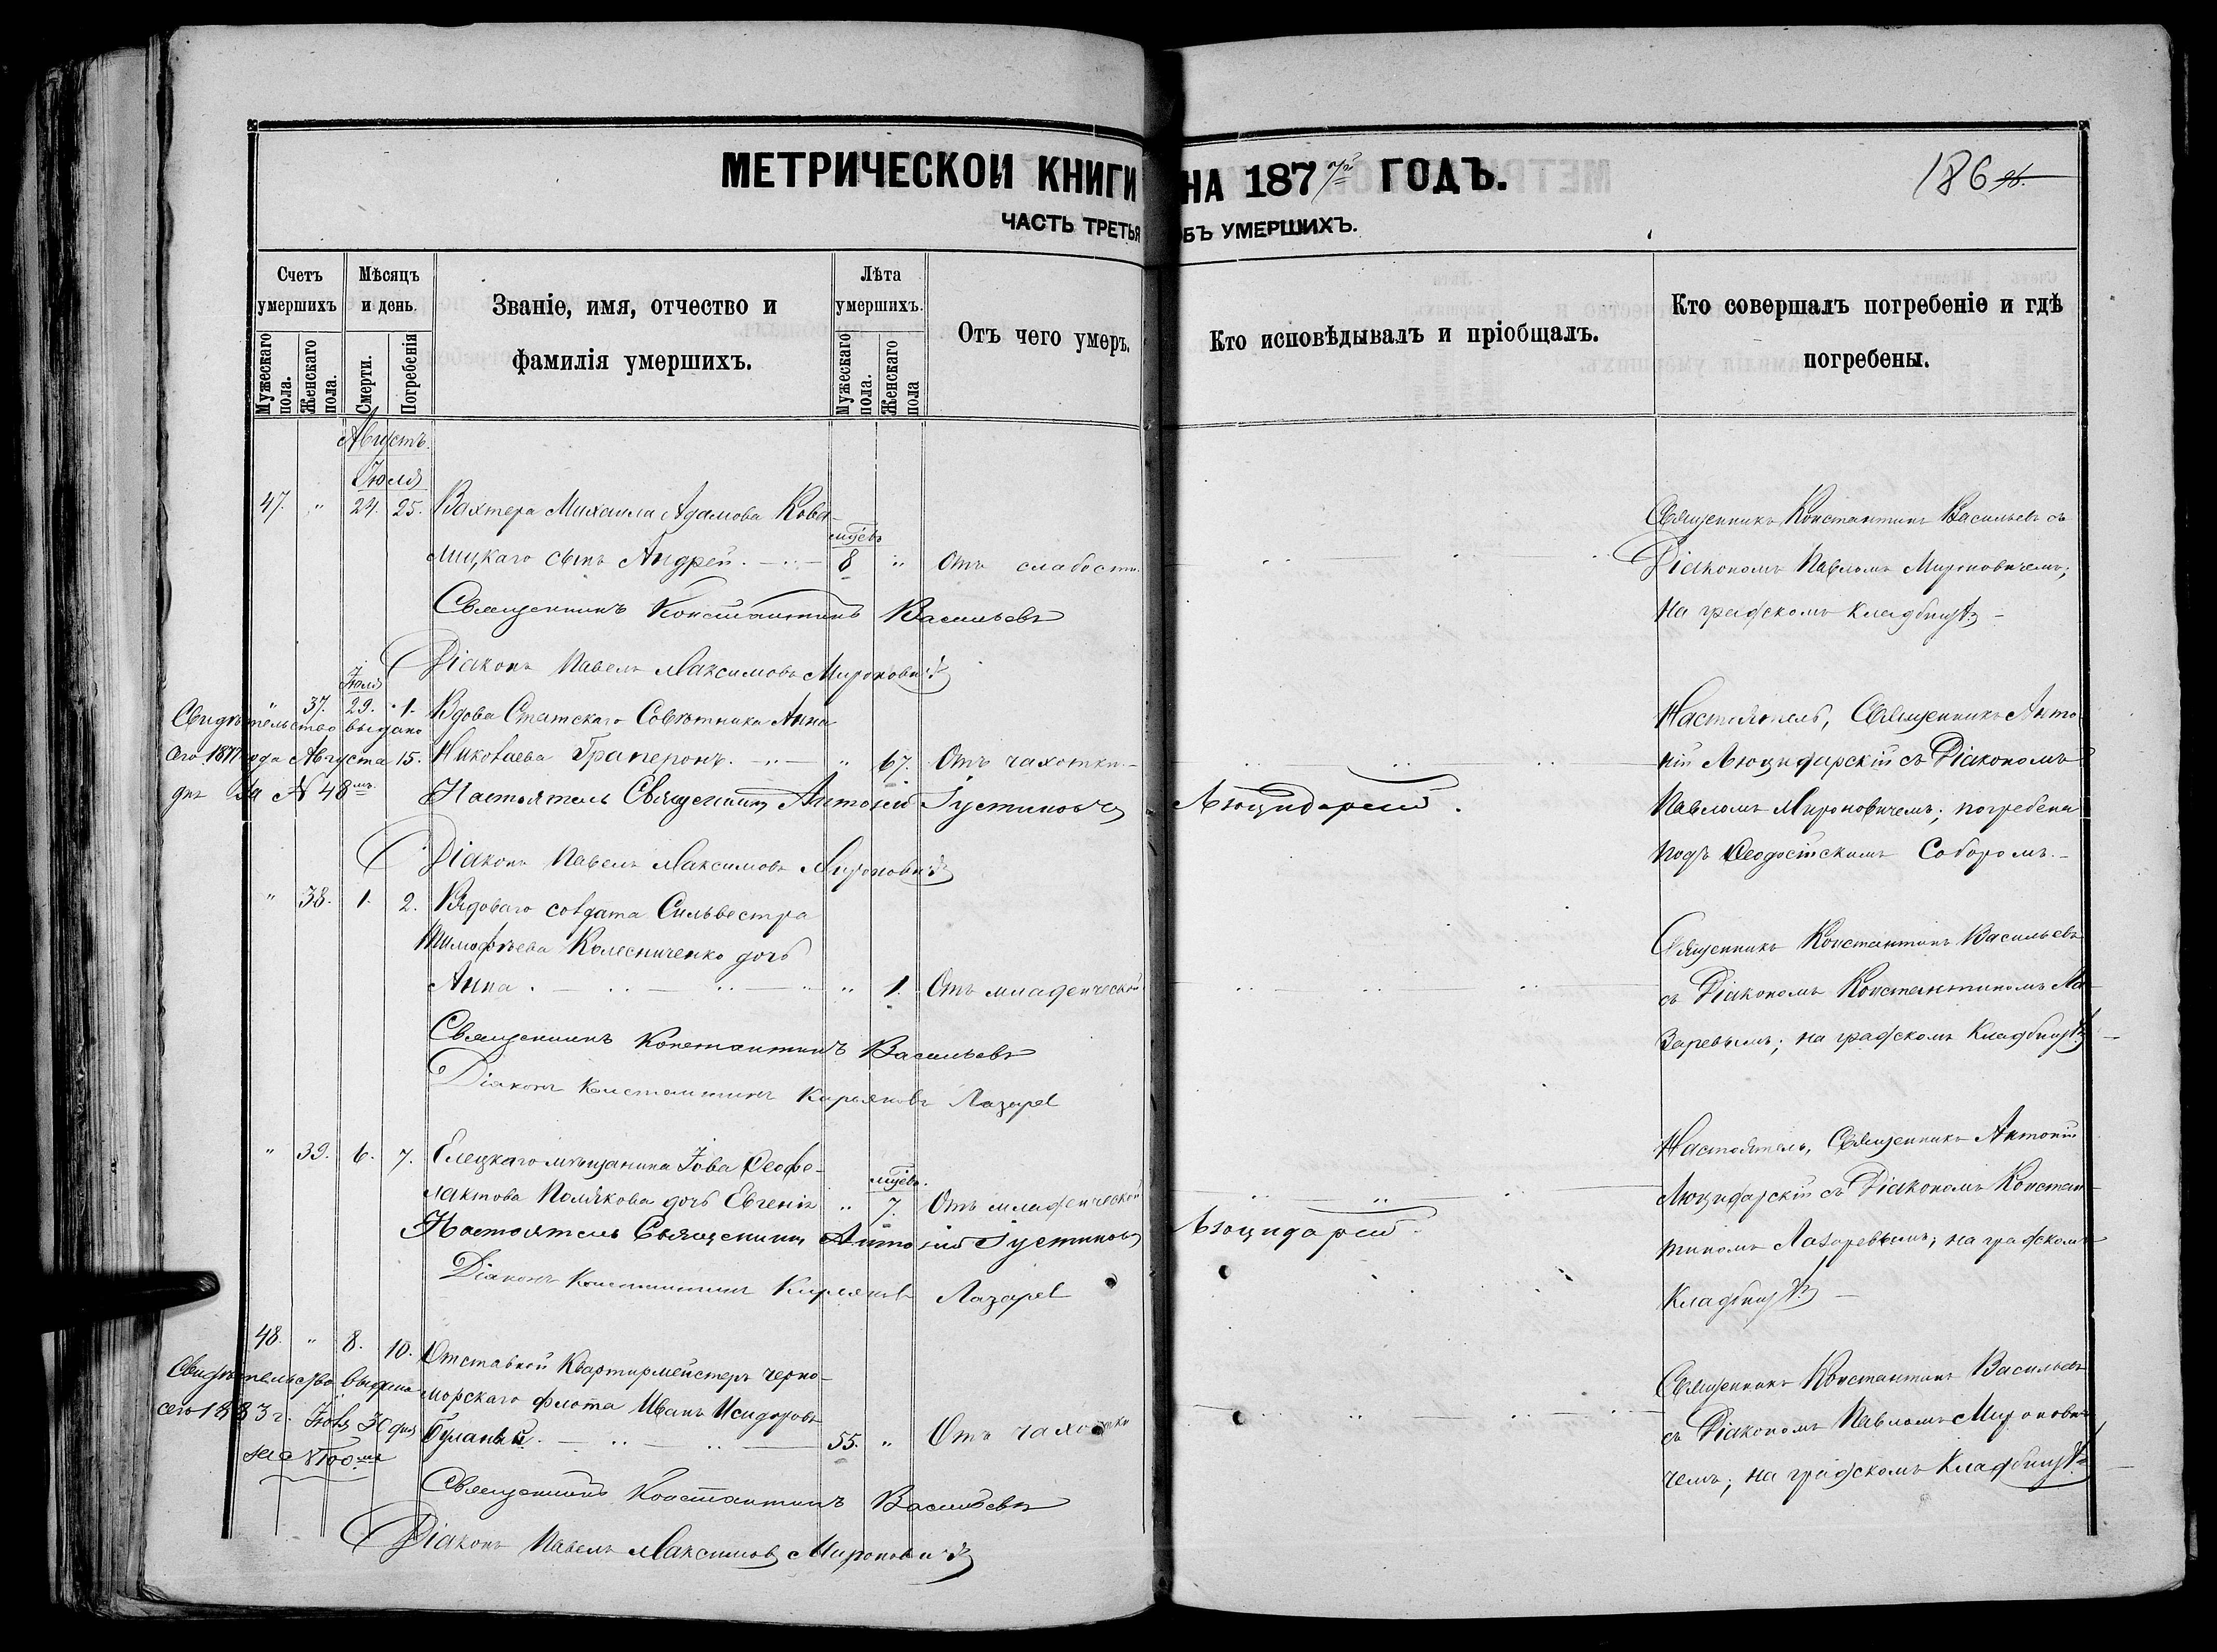 МЕТРИЧЕСКОЙ КНИГИ НА 1877й ГОДЪ.
186 96.
ЧАСТЬ ТРЕТЬЯ ОБЪ УМЕРШИХЪ.
Счетъ умершихъ
Мужескаго пола.
Женскаго пола.
Мѣсяцъ и день.
Смерти.
Погребенія
Званіе, имя, отчество и
фамилія умершихъ.
Лѣта умершихъ.
Мужескаго пола.
Женскаго пола
Отъ чего умеръ.
Кто исповѣдывалъ и пріобщалъ.
Кто совершалъ погребеніе и гдѣ
погребены.
Августъ.
Іюля
47. " 24. 25. Вахтера Михаила Адамова
мицкаго сынъ Андрей. 8 " Отъ слабости
Священникъ Константинъ Васильевъ съ
Діакономъ Павломъ Мироновичемъ;
На градскомъ кладбищѣ
Священникъ Константинъ Васильевъ
Діаконъ Павелъ Максимовъ Мироновичъ
Іюля
" 37. 29. 1. Вдова Статскаго Совѣтника Анна
Николаева Граперонъ. " 67. Отъ чахотки
Свидѣтельство выдано
сего 1877 года Августа 15.
дня за № 48мъ
Настоятель, Священникъ Анто-
ній Люцидарскій съ Діакономъ
Павломъ Мироновичемъ; погребена
подъ Ѳеодосійскимъ Соборомъ.
Настоятель Священникъ Антоній Іустиновъ Люцидарскій.
Діаконъ Павелъ Максимовъ Мироновичъ
" 38. 1. 2. Рядоваго солдата Сильвестра
Тимофѣева Колесниченко дочь
Анна. " 1. Отъ младенческой
Священникъ Константинъ Васильевъ
съ Діакономъ Константиномъ Ла-
заревымъ; на градскомъ Кладбищѣ
Священникъ Константинъ Васильевъ
Діаконъ Константинъ Кирьяковъ Лазарев
" 39. 6. 7. Елецкаго мѣщанина Іова Ѳеофи-
лактова Полякова дочь Евгенія " 7. Отъ младенческой
Настоятель, Священникъ Антоній
Люцидарскій съ Діакономъ Констан-
тиномъ Лазаревымъ, на градскомъ
Кладбищѣ
Настоятель Священникъ Антоній Іустиновъ Люцидарскій.
Діаконъ Константинъ Кирьяковъ Лазарев
48. " 8. 10. Отставной Квартирмейстеръ черно-
морскаго флота Иванъ Исидоровъ
Буланый. 55. " Отъ чахотки
Свидѣтельство выдано
сего 1883 г. 30 дня
за №
Священникъ Константинъ Васильевъ
съ Діакономъ Павломъ Миронови-
чемъ; на градскомъ Кладбищѣ
Священникъ Константинъ Васильевъ
Діаконъ Павелъ Максимовъ Мироновичъ